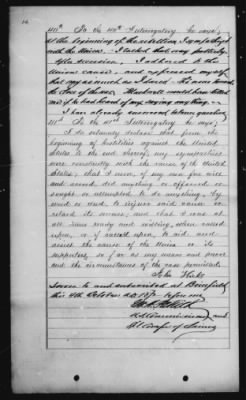 40th To the 40th Interrogatory he says:
at the beginning of the rebellion I sympathized
with the Union. I talked that way publicly.
After secession, I adhered to the
Union cause, and expressed myself
that way as much as I dared.
the close of the war. would have
me if he had heard of my saying any thing.
I have already answered
41st To the 41st Interrogatory he says:
I do solemnly declare that from the
beginning of hostilities against the United
States to the end thereof, my sympathies
were constantly with the cause of the United
States; that I never, of my own free will
and accord, did anything or offered, or
sought or attempted to do anything, by
word or deed to injure said cause or
retard its success, and that I was at
all times ready and willing, when called
upon, or if called upon, to aid and
assist the cause of the Union or its
supporters, so far as my means and power
and the circumstances of the case permitted.
John
Sworn to and subscribed at
this 4th October AD 187 before me
and